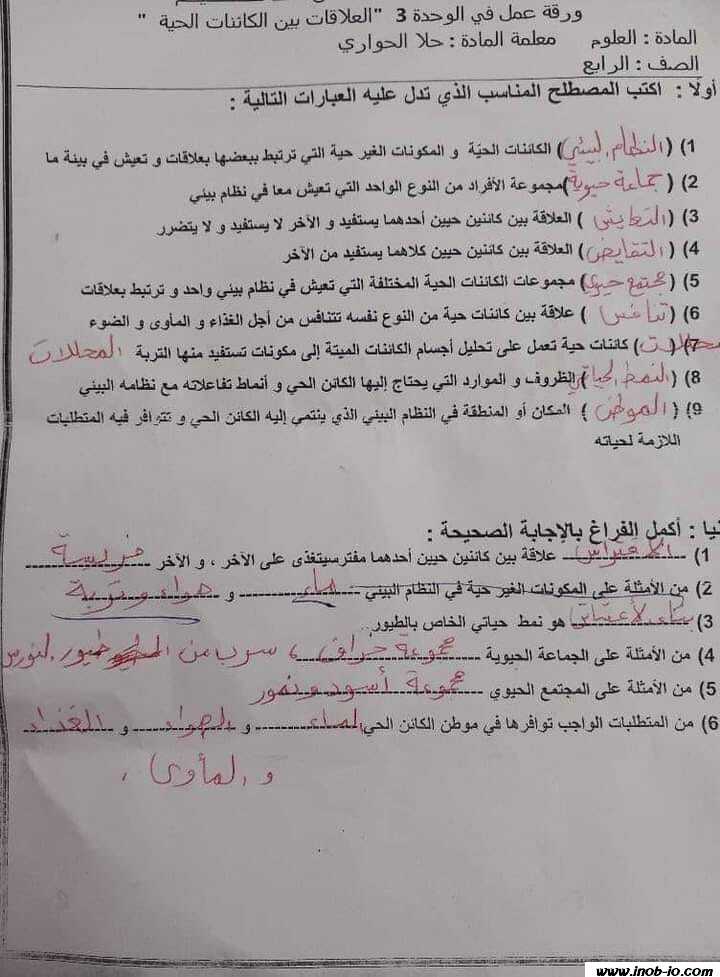 ورقة عمل في الوحدة 3 "العلاقات بين الكائنات الحية "
المادة : العلوم معلمة المادة : حلا الحواري
الصف : الرابع
أولا : اكتب المصطلح المناسب الذي تدل عليه العبارات التالية :
1) (النظام البيئي) الكائنات الحيّة و المكونات الغير حية التي ترتبط ببعضها بعلاقات و تعيش في بيئة ما
2) (جماعة حيوية) مجموعة الأفراد من النوع الواحد التي تعيش معا في نظام بيئي
3) (التعايش) العلاقة بين كائنين حيين أحدهما يستفيد و الآخر لا يستفيد و لا يتضرر
4) (التقايض) العلاقة بين كائنين حيين كلاهما يستفيد من الآخر
5) (مجتمع حيوي) مجموعات الكائنات الحية المختلفة التي تعيش في نظام بيئي واحد و ترتبط بعلاقات
6) (تنافس) علاقة بين كائنات حية من النوع نفسه تتنافس من أجل الغذاء و المأوى و الضوء
7) ( ) كائنات حية تعمل على تحليل أجسام الكائنات الميتة إلى مكونات تستفيد منها التربة المحللات
8) (النمط الحياتي) الظروف و الموارد التي يحتاج إليها الكائن الحي و أنماط تفاعلاته مع نظامه البيئي
9) (الموطن) المكان أو المنطقة في النظام البيئي الذي ينتمي إليه الكائن الحي و تتوافر فيه المتطلبات
اللازمة لحياته
نيا : أكمل الفراغ بالإجابة الصحيحة :
1) الافتراس علاقة بين كائنين حيين أحدهما مفترسيتغذى على الآخر ، و الآخر فريسة
2) من الأمثلة على المكونات الغير حية في النظام البيئي ماء و هواء و تربة
3) بناء الأعشاش هو نمط حياتي الخاص بالطيور..
4) من الأمثلة على الجماعة الحيوية مجموعة خراف ، سرب من طيور النورس
5) من الأمثلة على المجتمع الحيوي مجموعة أسود و نمور
6) من المتطلبات الواجب توافرها في موطن الكائن الحي الماء و الهواء و الغذاء
و المأوى .
www.jnob-jo.com